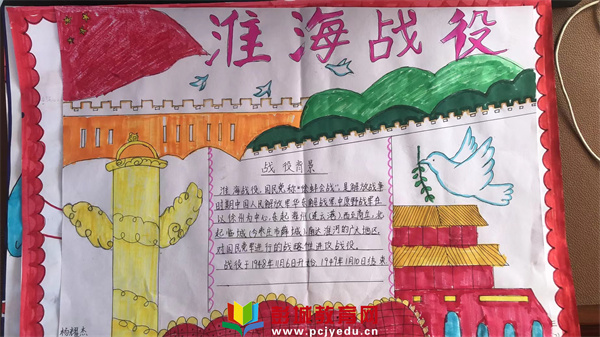 淮海战役
战役背景
淮海战役,国民党称"徐蚌会战",是解放战争
时期中国人民解放军华东野战军、中原野战军在
以徐州为中心,东起海州(连云港),西至商丘,北
起临城(今枣庄市薛城),南达淮河的广大地区,
对国民党军进行的战略性进攻战役。
战役于1948年11月6日开始,1949年1月10日结束
www.pcjyedu.cn